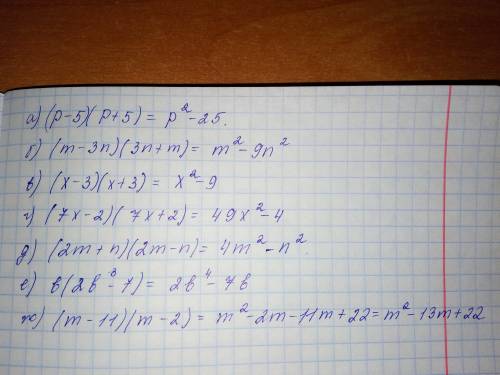 а) (p-5)(p+5) = p²-25.
б) (m-3n)(3n+m) = m²-9n²
в) (x-3)(x+3) = x²-9
г) (7x-2)(7x+2) = 49x²-4
д) (2m+n)(2m-n) = 4m²-n²
е) b(2b³-7) = 2b⁴-7b
ж) (m-11)(m-2) = m²-2m-11m+22 = m²-13m+22